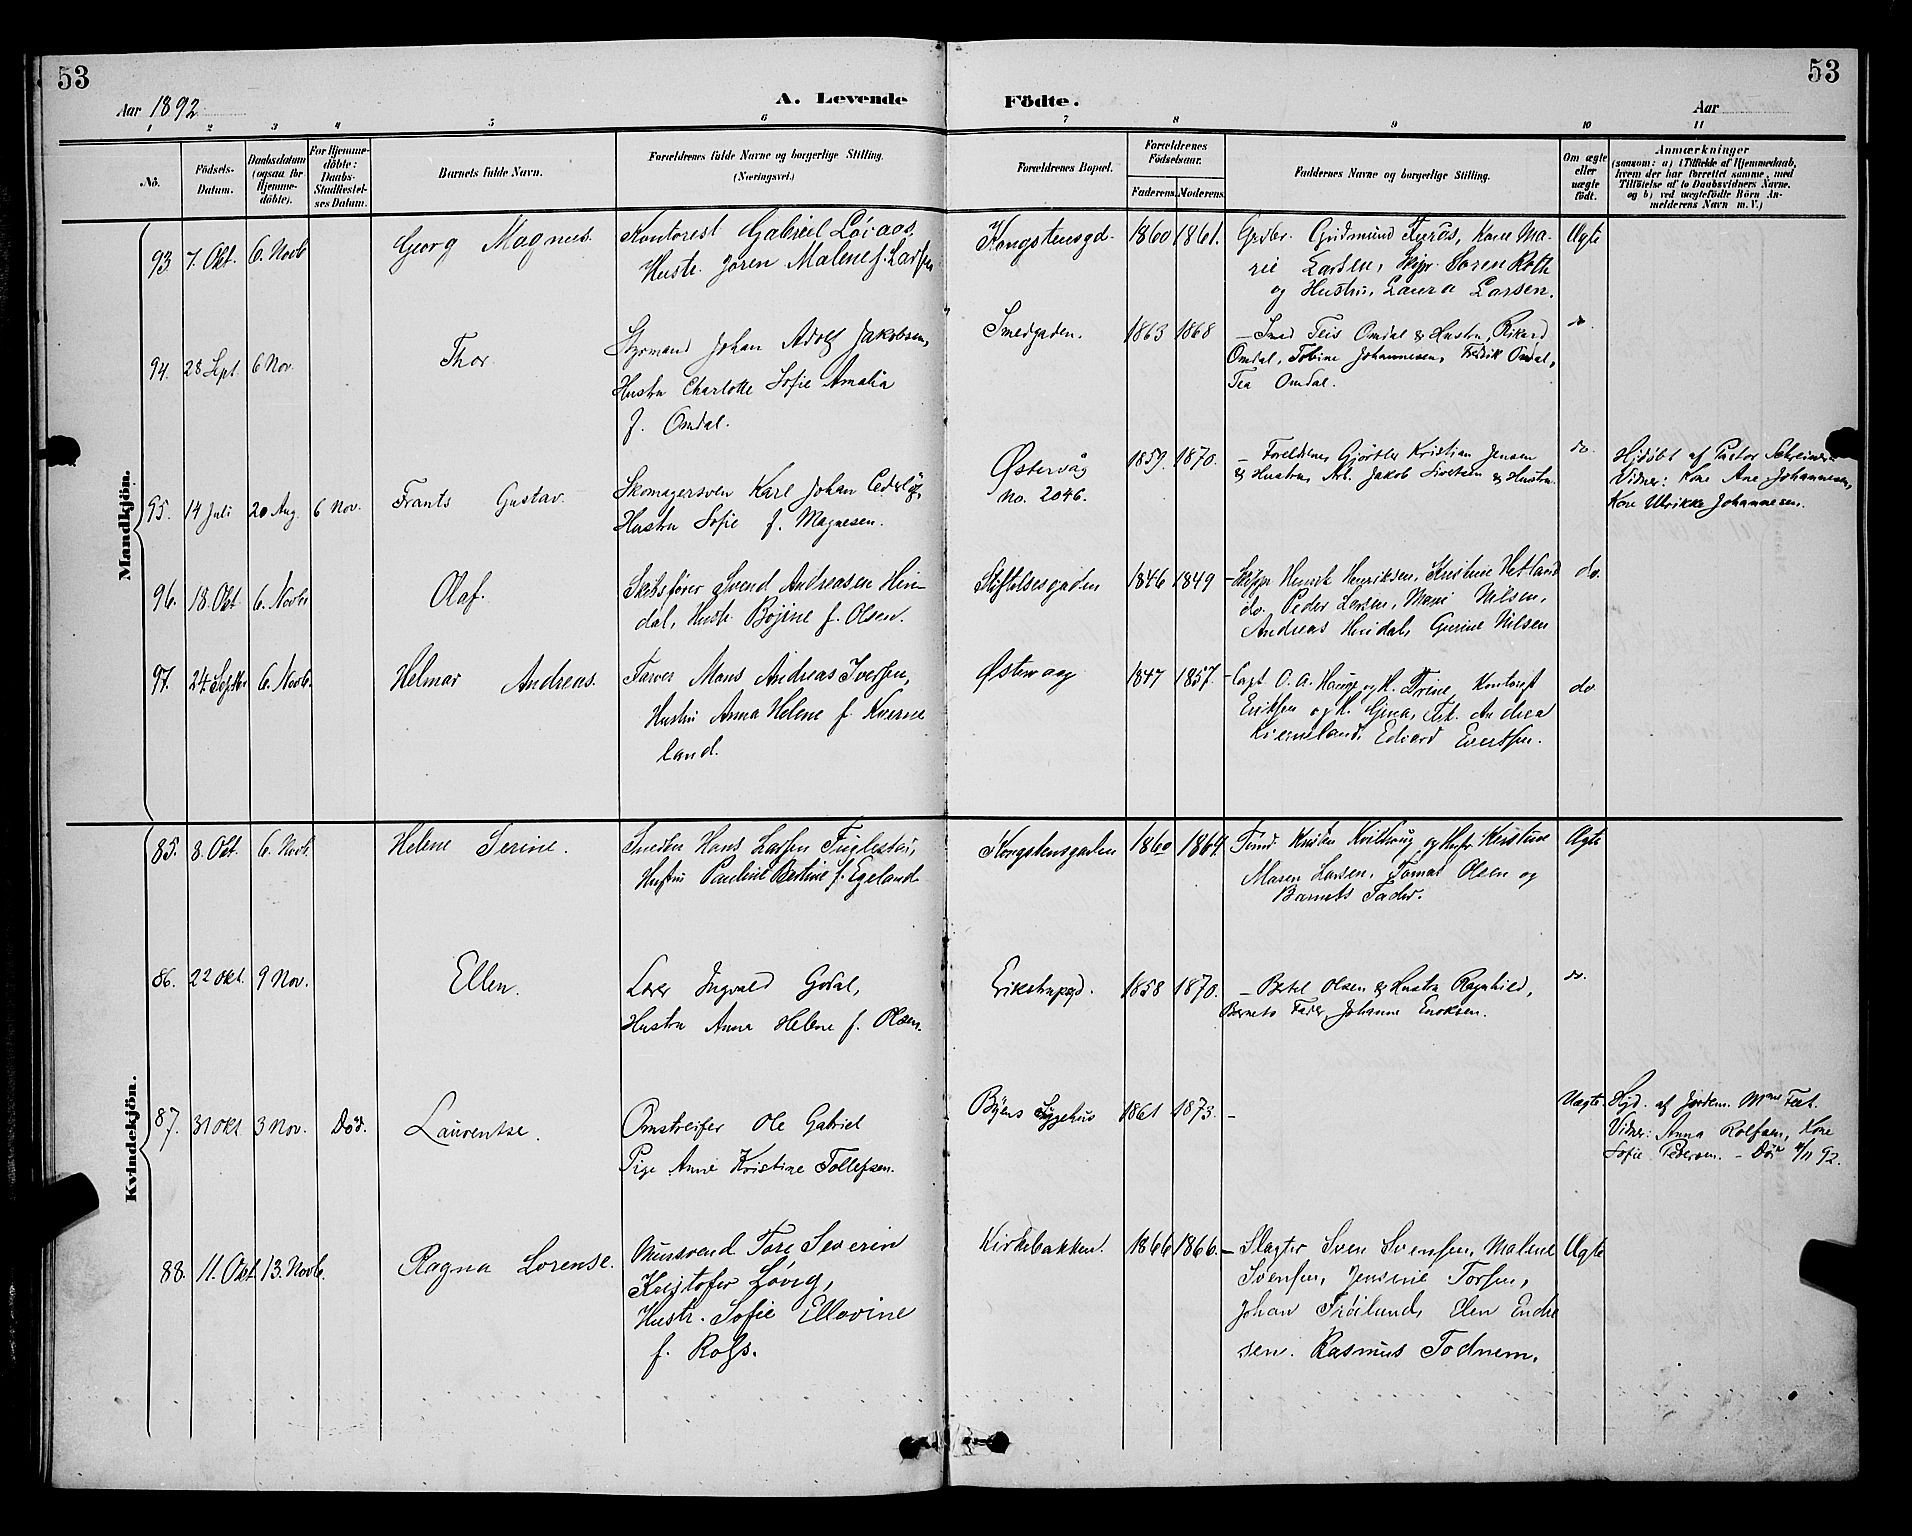 53
53
Aar 1892
A. Levende
Födte.
Aar
1 2 3 4 5 6 7 8 9 10 11
No.
Födsels-
Datum.
Daabsdatum
(ogsaa for
Hjemme-
döbte).
For Hjemme-
döbte:
Daabs-
Stadfæstel-
ses Datum.
Barnets fulde Navn.
Forældrenes fulde Navne og borgerlige Stilling.
(Næringsvei.)
Forældrenes Bopæl.
Forældrenes
Födselsaar.
Faderens. Moderens.
Faddernes Navne og borgerlige Stilling.
Om ægte
eller
uægte
født.
Anmærkninger
(saasom: a) i Tilfælde af Hjemmedaab,
hvem der har forrettet samme, med
Tilföielse af to Daabsvidners Navne.
og b) ved uægtefödte Börn An-
melderens Navn m. V.)
Mandkjön.
93 7. Okt. 6. Novb Georg Magnus.
Kontorist Gabriel
Hustr. Joren Malene f. Larsen
Kongstensgd. 1860 1861.
Gudmund Kone Ma-
rie Larsen, Skpr. Soren Roth
og Hustru, Laura Larsen.
Ægte
94. 28 Sept 6 Nov. Thor.
Styrmand Johan Adolf Jakobsen,
Hustru Charlotte Sofie Amalia
f. Omdal.
Smedgaden. 1863 1868
– Smed Teis Omdal & Hustru, Rikard
Omdal, Tobine Johannesen, Fredrik Omdal,
Tea Omdal.
do.
95. 14 Juli 20 Aug. 6 Nov. Frants Gustav.
Skomagersven Karl Johan
Hustru Sofie f. Magnesen.
Østervåg
No. 2046.
1859. 1870.
– Foreldrene, Gjørtler Kristian Jensen
& Hustru, Arb. Jakob Sivertsen & Hustru.
do.
Hjdøbt af Pastor Schreiner.
Vidner: Kone Ane Johannesen,
Kone Ulrikke Johannesen.
96. 18. Okt. 6. Novbr Olaf.
Skibsfører Svend Andreasen Hin-
dal, Hustr. Bojine f. Olsen.
Stiftelsesgaden 1846 1849
– Skippr Henrik Henriksen, Kristine Hetland
do. Peder Larsen, Marie Nilsen,
Andreas Hindal, Gurine Nilsen
do.
97. 24. Septbr 6. Novb. Helmar Andreas.
Farver Mons Andreas Iversen,
Hustru Anna Helene f. Kverne
land.
Østervaag 1847 1857.
– Capt. O. A. Hauge og H. Trine, Kontorist
Eriksen og H. Gina, Frk. Andrea
Kverneland, Edvard Evertsen.
do.
Kvindekjön.
85. 8. Okt. 6. Novb. Helene Serine.
Snedker Hans Larsen Fuglestad,
Hustru Pauline Bertine f. Egeland
Kongstensgaden 1860 1864.
Kristen og Hustr Kristine
Maren Larsen, Tomas Olsen og
Barnets Fader.
Ægte
86. 22 Okt. 9 Nov. Ellen.
Lærer Ingvald Godal,
Hustru Anne Helene f. Olsen.
Erikstrupgd. 1858 1870.
– Bertel Olsen & Hustru Ragnhild,
Barnets Fader, Johanne Enoksen.
do.
87. 31 Okt. 3 Nov. Død. Laurentse.
Omstreifer Ole Gabriel
Pige Anne Kristine Tollefsen.
Byens Sygehus 1861 1873. –
Uægte
Hjd. af Jordem. Mme Feit.
Vidner: Anna Rolfsen, Kone
Sofie Pedersen. – Død 4/11 92.
88. 11. Okt 13. Novb. Ragna Lorense.
Mursvend Tore Severin
Kristofer Løvig,
Hustr. Sofie Ellovine
f. Rofs.
Kirkebakken. 1866 1866.
– Slagter Sven Svensen, Malene
Svensen, Jensine Torsen,
Johan Trøilund, Elen Endre
sen. Rasmus Todnem.
Ægte